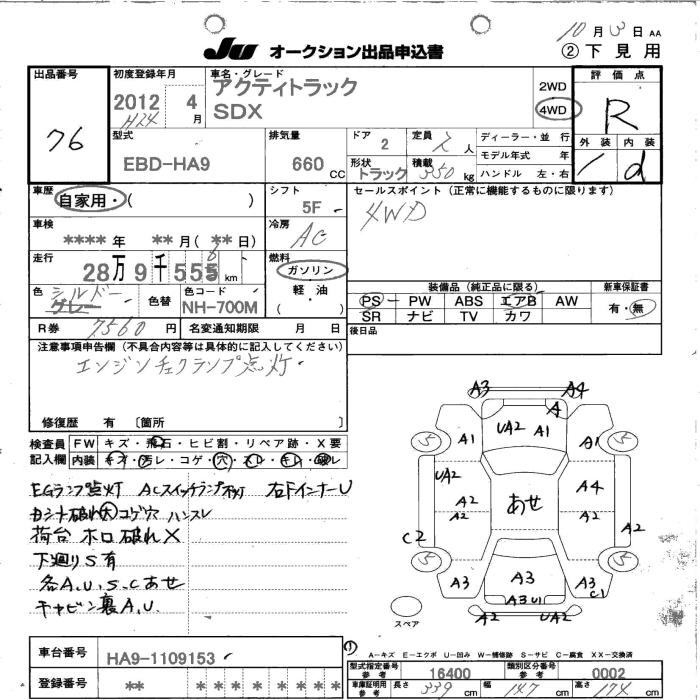 10月3日 AA
JU オークション出品申込書
② 下見用
出品番号
76
初度登録年月
2012 4月
H24
車名・グレード
アクティトラック
SDX
2WD
4WD
評価点
R
外装 内装
1 d
型式
EBD-HA9
排気量
660 CC
ドア
2
定員
2人
形状
トラック
積載
350 kg
ディーラー・並行
モデル年式 年
ハンドル 左・右
車歴
自家用・( )
シフト
5F
セールスポイント(正常に機能するものに限ります)
4WD
車検
**** 年 ** 月 (** 日)
冷房
AC
走行
28万9千55 km
燃料
ガソリン
軽・油
( )
色
シルバー
グレー
色替
色コード
NH-700M
装備品(純正品に限る)
PS PW ABS エアB AW
SR ナビ TV カワ
新車保証書
有・無
R券 7560 円
名変通知期限 月 日
後日品
注意事項申告欄(不具合内容等は具体的に記入してください)
エンジンチェクランプ点灯・
修復歴 有 〔箇所 〕
検査員記入欄
FW キズ・飛石・ヒビ割・リペア跡・X要
内装 キズ・汚レ・コゲ・穴・スレ・キレ・破レ
EGランプ点灯 ACスイッチランプ不灯 右ドインナーU
ウシート破れ大 コゲ穴 ハンスレ
荷台 ホロ破れX
下廻りS有
各A.U.S.Cあせ
キャビン裏A.U.
A3 A4
A
UA2 A1
A1 A1
UA2
A2
A2
あせ
A4
A2
A2
C2
A3 A3 A3
C1
A3U1
A2 UA2
スペア
A-キズ E-エクボ U-凹み W-補修跡 S-サビ C-腐食 XX-交換済
車台番号
HA9-1109153
登録番号
** * * * * * * *
型式指定番号
参考
16400
類別区分番号
参考
0002
車庫証明用
参考
長さ 339 cm
幅 147 cm
高さ 174 cm